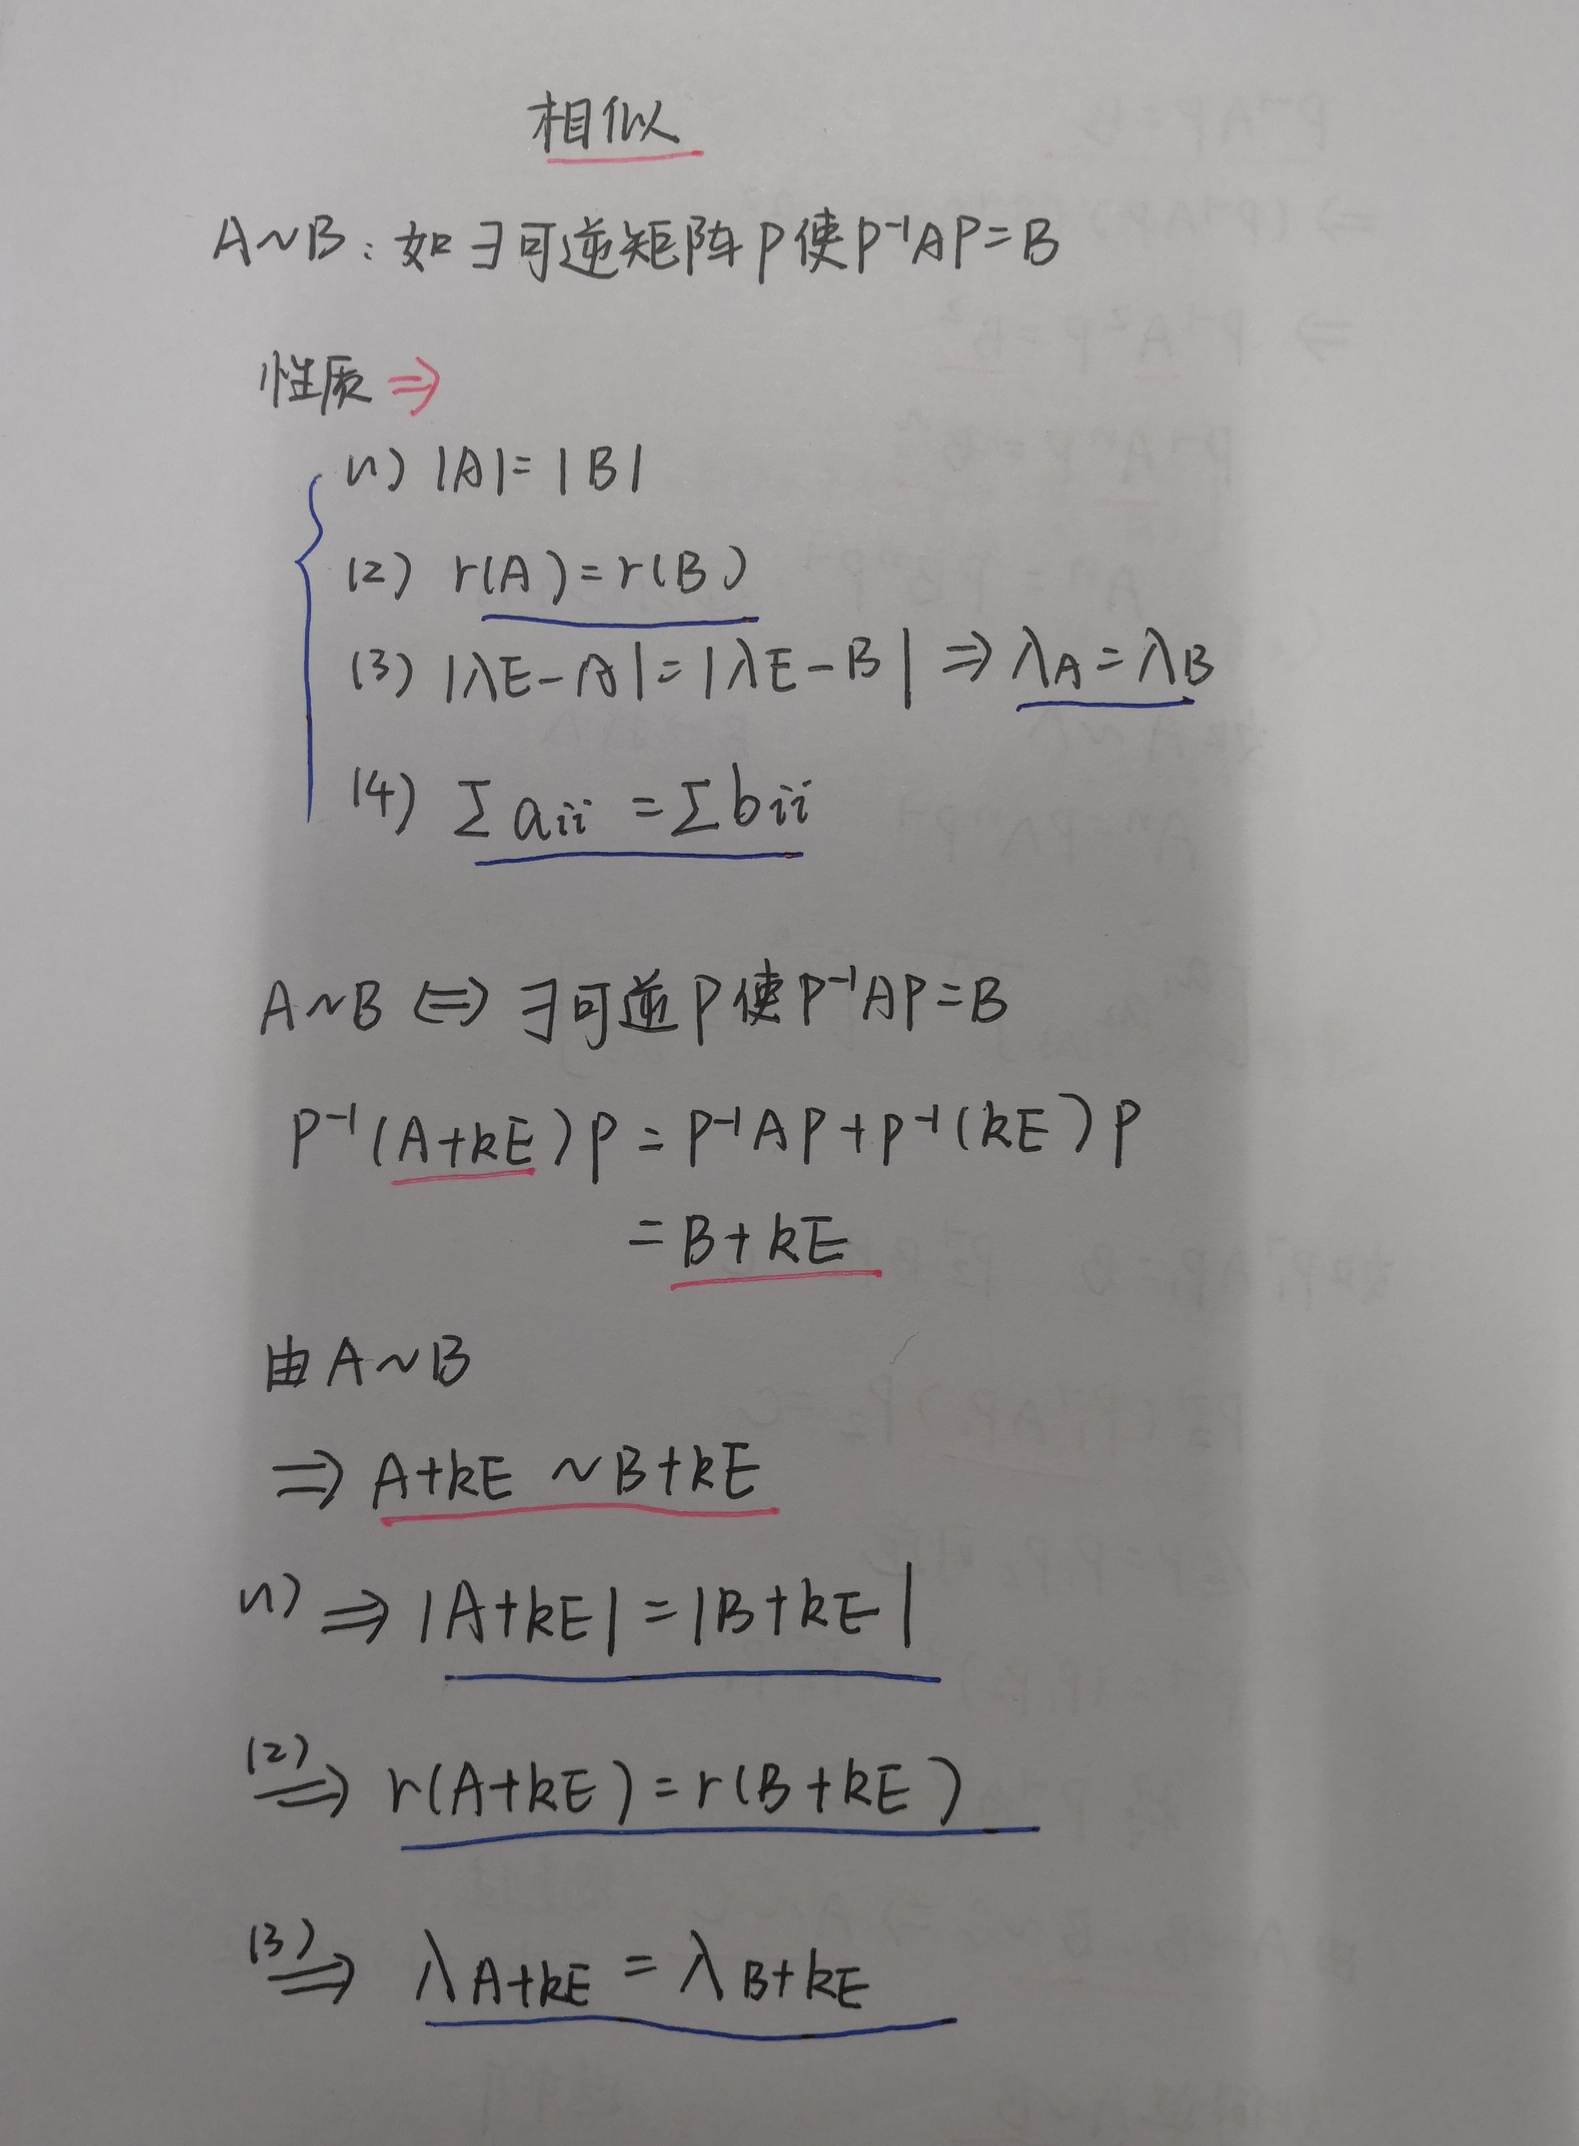 相似
A~B：如∃可逆矩阵P使P⁻¹AP=B
性质⇒
(1) |A|=|B|
(2) r(A)=r(B)
(3) |λE-A|=|λE-B| ⇒ λA=λB
(4) Σaii=Σbii
A~B ⇔ ∃可逆P使P⁻¹AP=B
P⁻¹(A+kE)P=P⁻¹AP+P⁻¹(kE)P
=B+kE
由A~B
⇒ A+kE ~B+kE
(1) ⇒ |A+kE|=|B+kE|
(2) ⇒ r(A+kE)=r(B+kE)
(3) ⇒ λA+kE=λB+kE